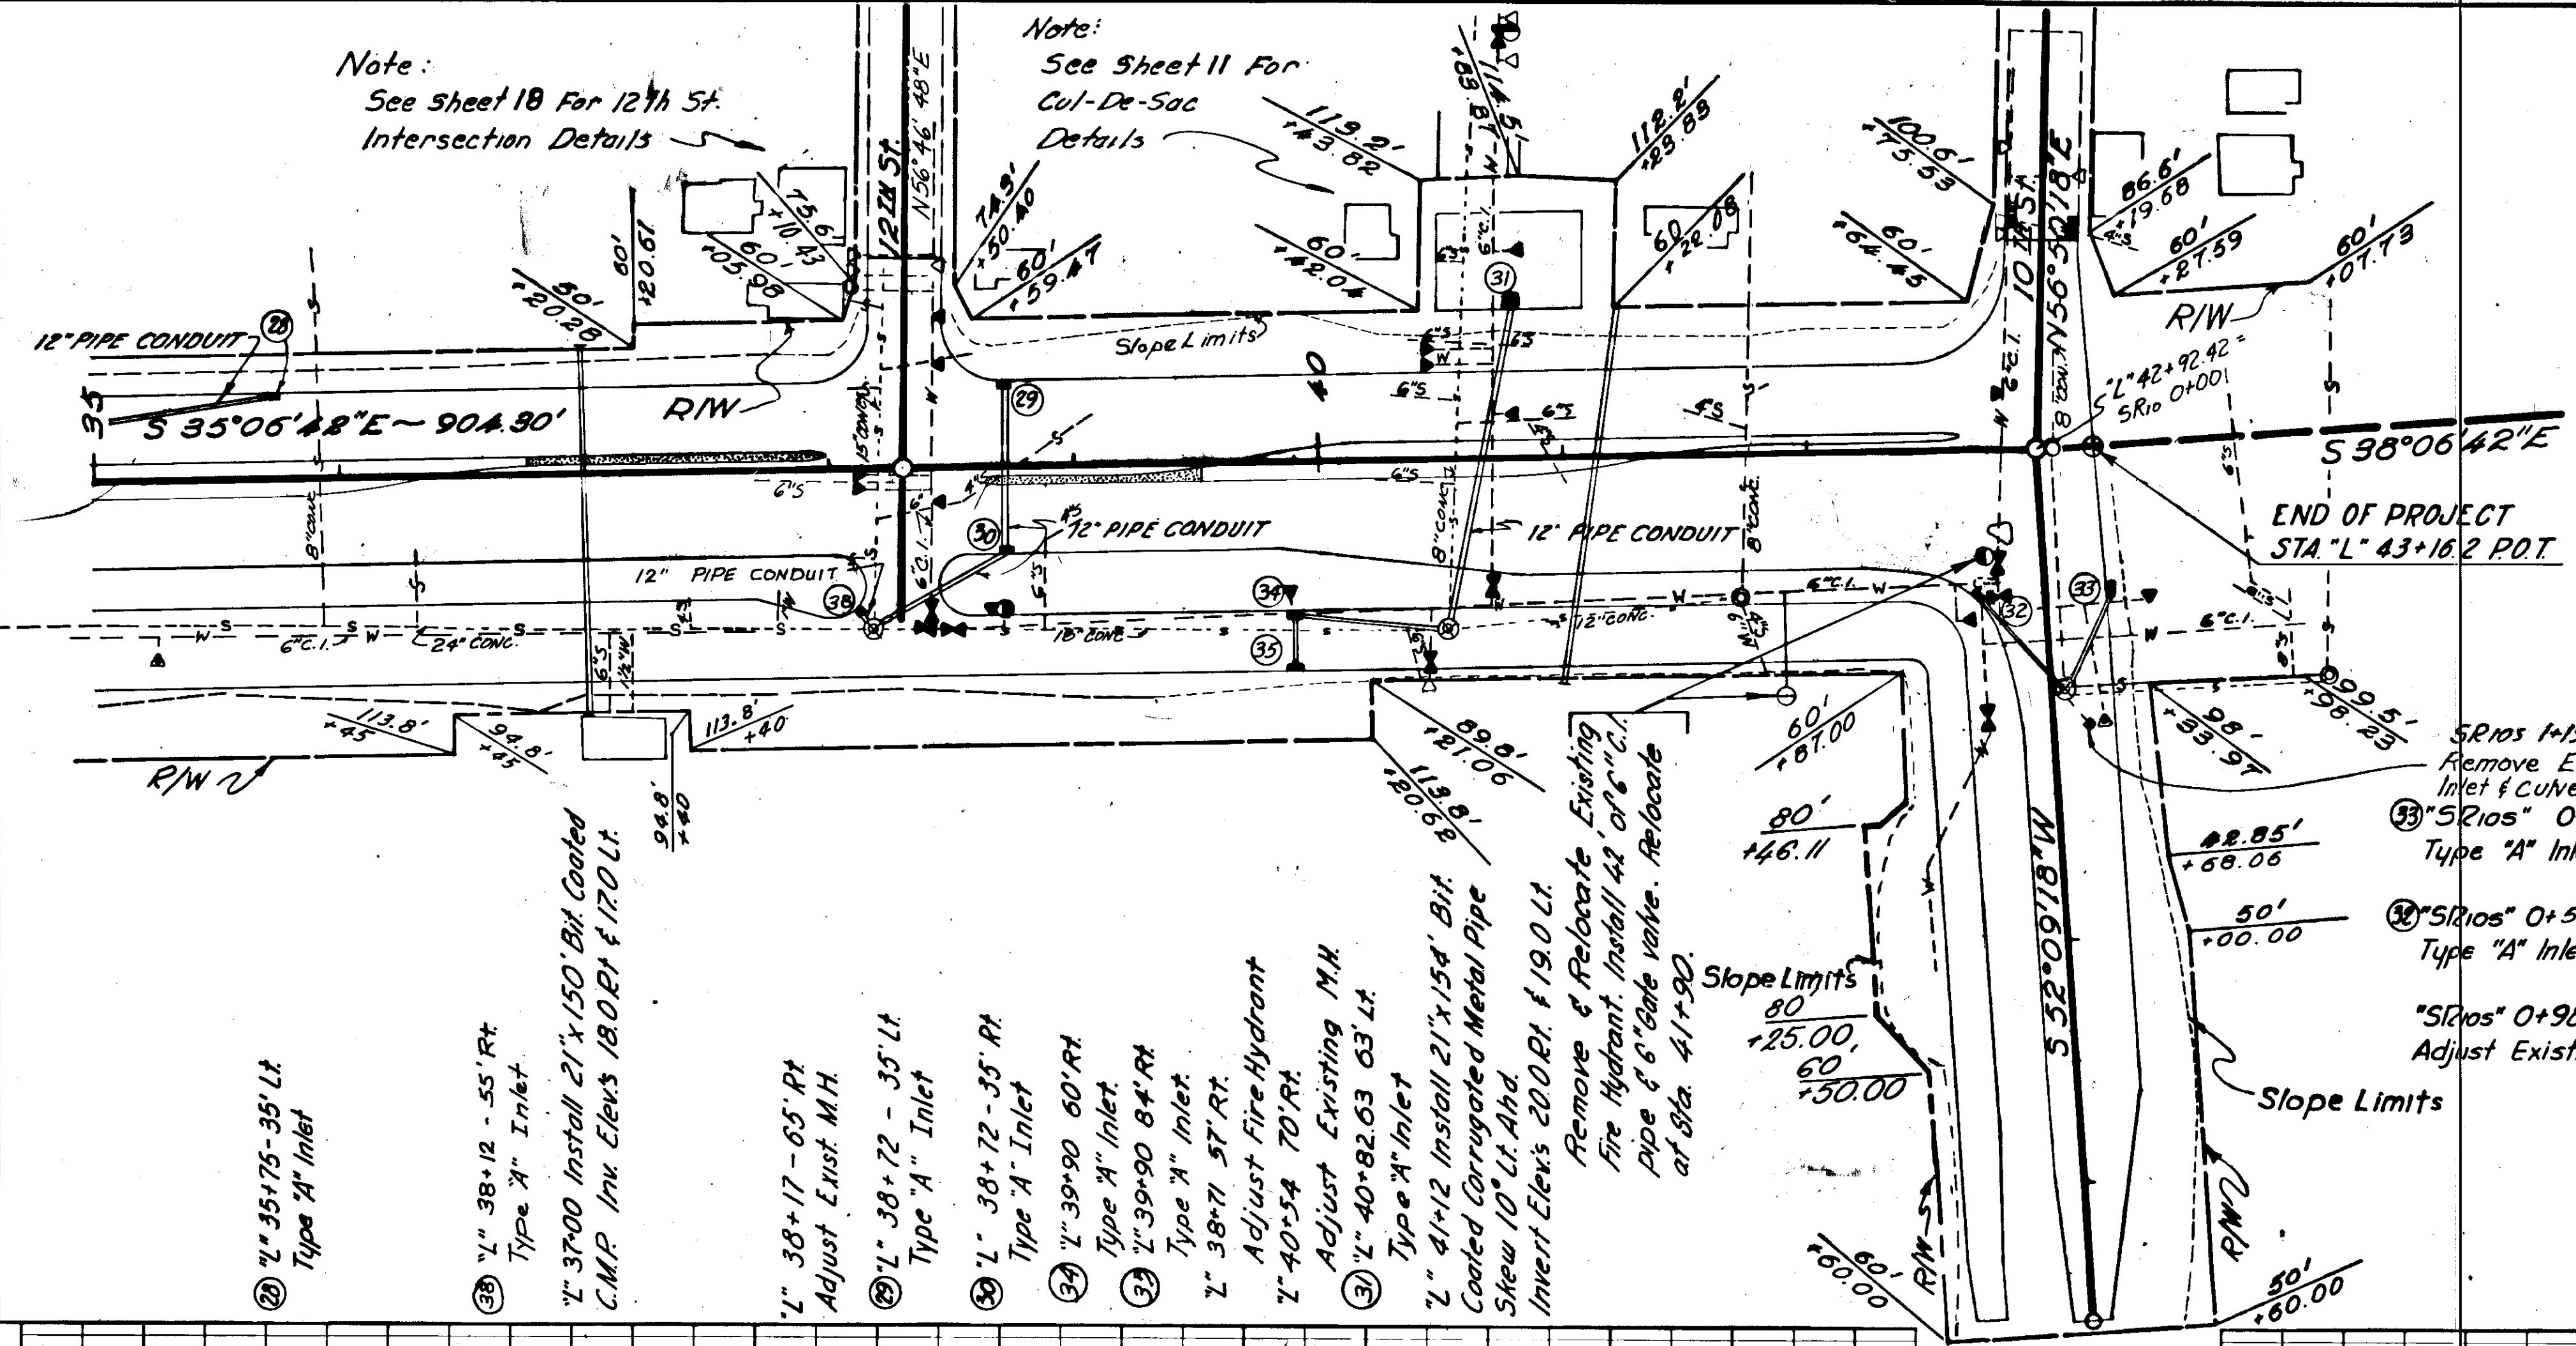 Note:
See Sheet 18 For 12th St.
Intersection Details
Note:
See Sheet 11 For
Cul-De-Sac
Details
12TH ST.
N56°46'48"E
10TH St.
N56°50'18"E
119.2'
+43.82
114.5'
+83.87
112.2'
+23.83
100.6'
+75.53
86.6'
+19.68
60'
+27.59
60'
+07.73
60'
+64.45
60
+22.08
60'
+42.04
74.9'
+50.40
60'
+59.47
75.6'
+10.43
60'
+05.98
60'
+20.61
50'
+20.28
12" PIPE CONDUIT
28
35
S 35°06'42"E ~ 904.30'
R/W
Slope Limits
40
29
30
31
R/W
"L" 42+92.42 =
SR10 0+00
S 38°06'42"E
END OF PROJECT
STA. "L" 43+16.2 P.O.T.
8" CONC
15" CONC
6"S
4"S
6"C.I.
12" PIPE CONDUIT
12" PIPE CONDUIT
12" PIPE CONDUIT
8" CONC
8" CONC
2"C.I.
8" CONC
38
34
35
32
33
6"C.I.
24" CONC.
6"S
1½"W
12" CONC.
6"C.I.
6"C.I.
8"S
R/W
113.8'
+45
94.8'
+45
113.8'
+40
94.8'
+40
89.8'
+21.06
113.8'
+20.96
60'
+87.00
80'
+46.11
98'
+33.97
99.5'
+98.23
42.85'
+68.06
50'
+00.00
S 52°09'18"W
Slope Limits
80
+25.00,
60
+50.00
60'
+60.00
R/W
Slope Limits
R/W
50'
+60.00
Remove E
Inlet & Culve
33 "SR10s" 0
Type "A" Inl
32 "SR10s" 0+5
Type "A" Inle
"SR10s" 0+98
Adjust Exist.
28 "L" 35+75-35' Lt.
Type "A" Inlet
38 "L" 38+12 - 55' Rt.
Type "A" Inlet
"L" 37+00 Install 21" x 150' Bit. Coated
C.M.P. Inv. Elev.s 18.0 Rt & 17.0 Lt.
"L" 38+17 - 65' Rt.
Adjust Exist. M.H.
29 "L" 38+72 - 35' Lt
Type "A" Inlet
30 "L" 38+72 - 35' Rt.
Type "A" Inlet
34 "L" 39+90 60' Rt.
Type "A" Inlet.
35 "L" 39+90 84' Rt.
Type "A" Inlet.
"L" 38+71 57' Rt.
Adjust Fire Hydrant
"L" 40+54 70' Rt.
Adjust Existing M.H.
31 "L" 40+82.63 63' Lt.
Type "A" Inlet
"L" 41+12 Install 21" x 154' Bit.
Coated Corrugated Metal Pipe
Skew 10° Lt. Ahd.
Invert Elev.s 20.0 Rt. & 19.0 Lt.
Remove & Relocate Existing
Fire Hydrant. Install 42' of 6" C.I.
pipe & 6" Gate valve. Relocate
at Sta. 41+90.